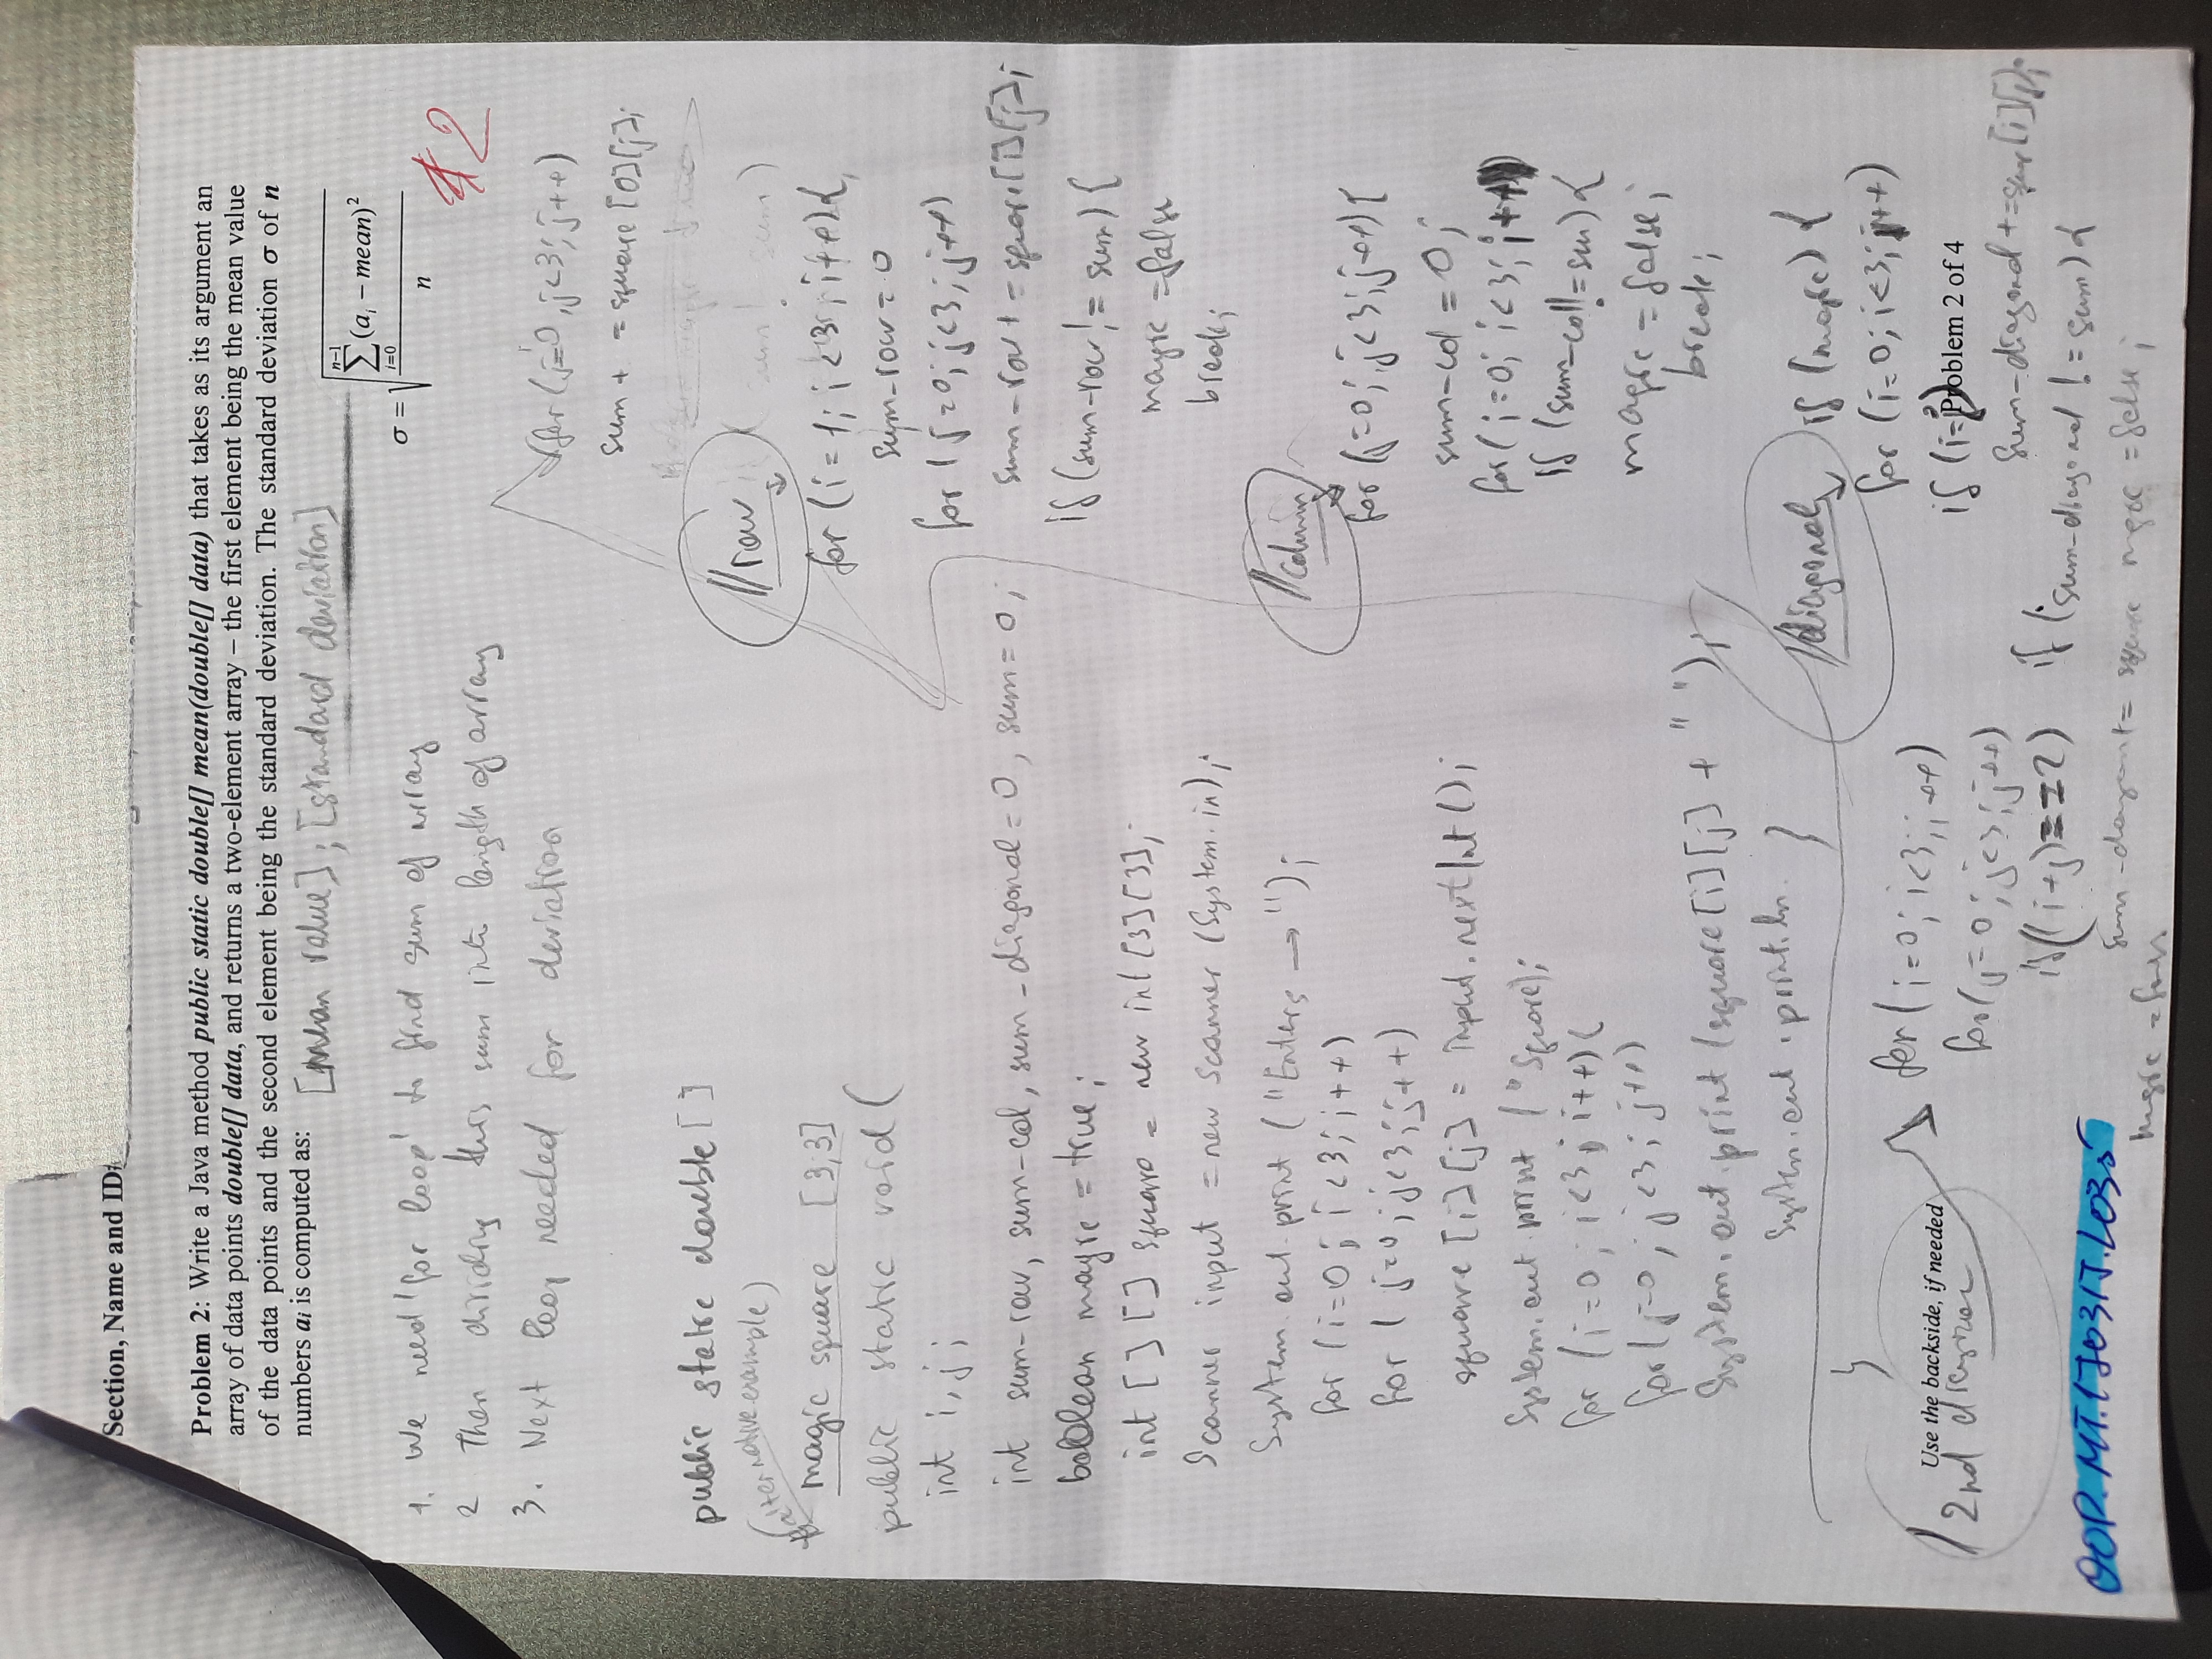 Section, Name and ID
Problem 2: Write a Java method public static double[] mean(double[] data) that takes as its argument an
array of data points double[] data, and returns a two-element array – the first element being the mean value
of the data points and the second element being the standard deviation. The standard deviation σ of n
numbers ai is computed as:
[mean value]; [standard deviation]
σ = √( ∑_{i=0}^{n-1} (a_i − mean)² / n )
2
1. We need 'for loop' to find sum of array
2 Then dividing this sum into length of array
3. Next loop needed for deviation
public static double []
(alternative example)
magic square [3,3]
public static void (
int i, j;
int sum-row, sum-col, sum-diagonal = 0, sum = 0;
boolean magic = true;
int [] [] square = new int [3][3];
Scanner input = new Scanner (System.in);
System.out.print ("Enters → ");
for (i=0; i<3; i++)
for (j=0; j<3; j++)
square [i][j] = input.nextInt ();
System.out.print ("Square);
for (i=0; i<3; i++){
for (j=0; j<3; j++)
System.out.print (square[i][j] + " ");
System.out.print.ln. }
for (j=0, j<3; j++)
sum + = square [0][j];
//row
for (i=1; i<3; i++){
sum-row = 0
for (j=0; j<3; j++)
sum-row + = square[i][j];
if (sum-row != sum) {
magic = false
break;
//column
for (j=0; j<3; j++){
sum-col = 0;
for (i=0; i<3; i++
if (sum-col != sum) {
magic = false;
break;
//diagonal
if (magic) {
for (i=0; i<3; i++)
if (i=j)
sum-diagonal += [i][j];
if (sum-diagonal != sum) {
magic = false;
Use the backside, if needed
Problem 2 of 4
//2nd diagonal
for (i=0; i<3; i++)
for (j=0; j<3; j++)
if ((i+j)==2)
sum-diagonal+= square
magic = false
OOP.MT.170317.L035